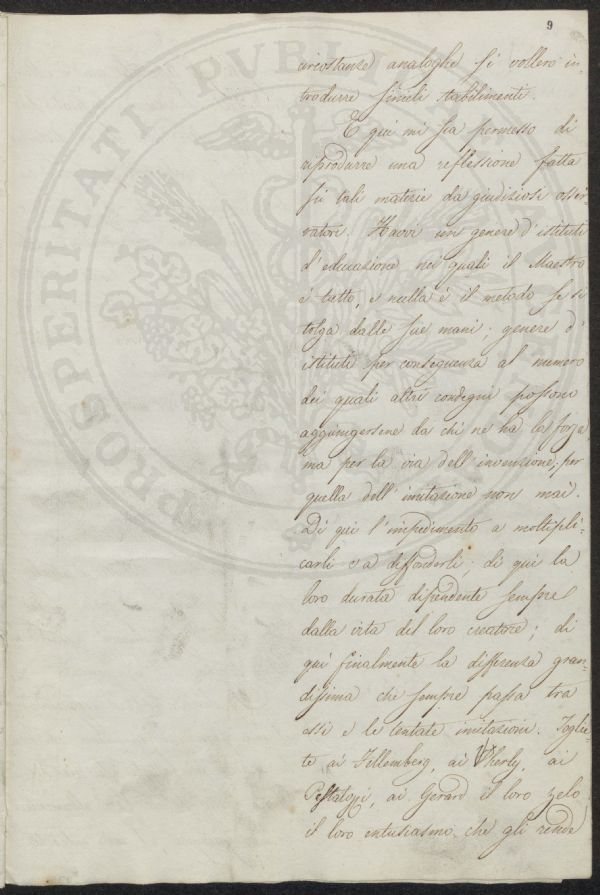 9
circostanze analoghe si vollero in-
trodurre simili stabilimenti.
E qui mi sia permesso di
riprodurre una reflessione fatta
su tali materie da giudiziosi osser
vatori. Havvi un genere d'istituti
d'educazione nei quali il Maestro
è tutto, e nulla è il metodo se si
tolga dalle sue mani; genere d'
istituti per conseguenza al numero
dei quali altri condegni possono
aggiungersene da chi ne ha la forza
ma per la via dell'invenzione, per
quella dell'imitazione non mai.
Di qui l'impedimento a moltipli-
carli e a diffonderli; di qui la
loro durata dipendente sempre
dalla vita del loro creatore; di
qui finalmente la differenza gran-
dissima che sempre passa tra
essi e le tentate imitazioni. Toglie-
te ai Fellemberg, ai Wherly, ai
Pestalozzi, ai Gerard il loro zelo
il loro entusiasmo che gli rende
PROSPERITATI PUBLI